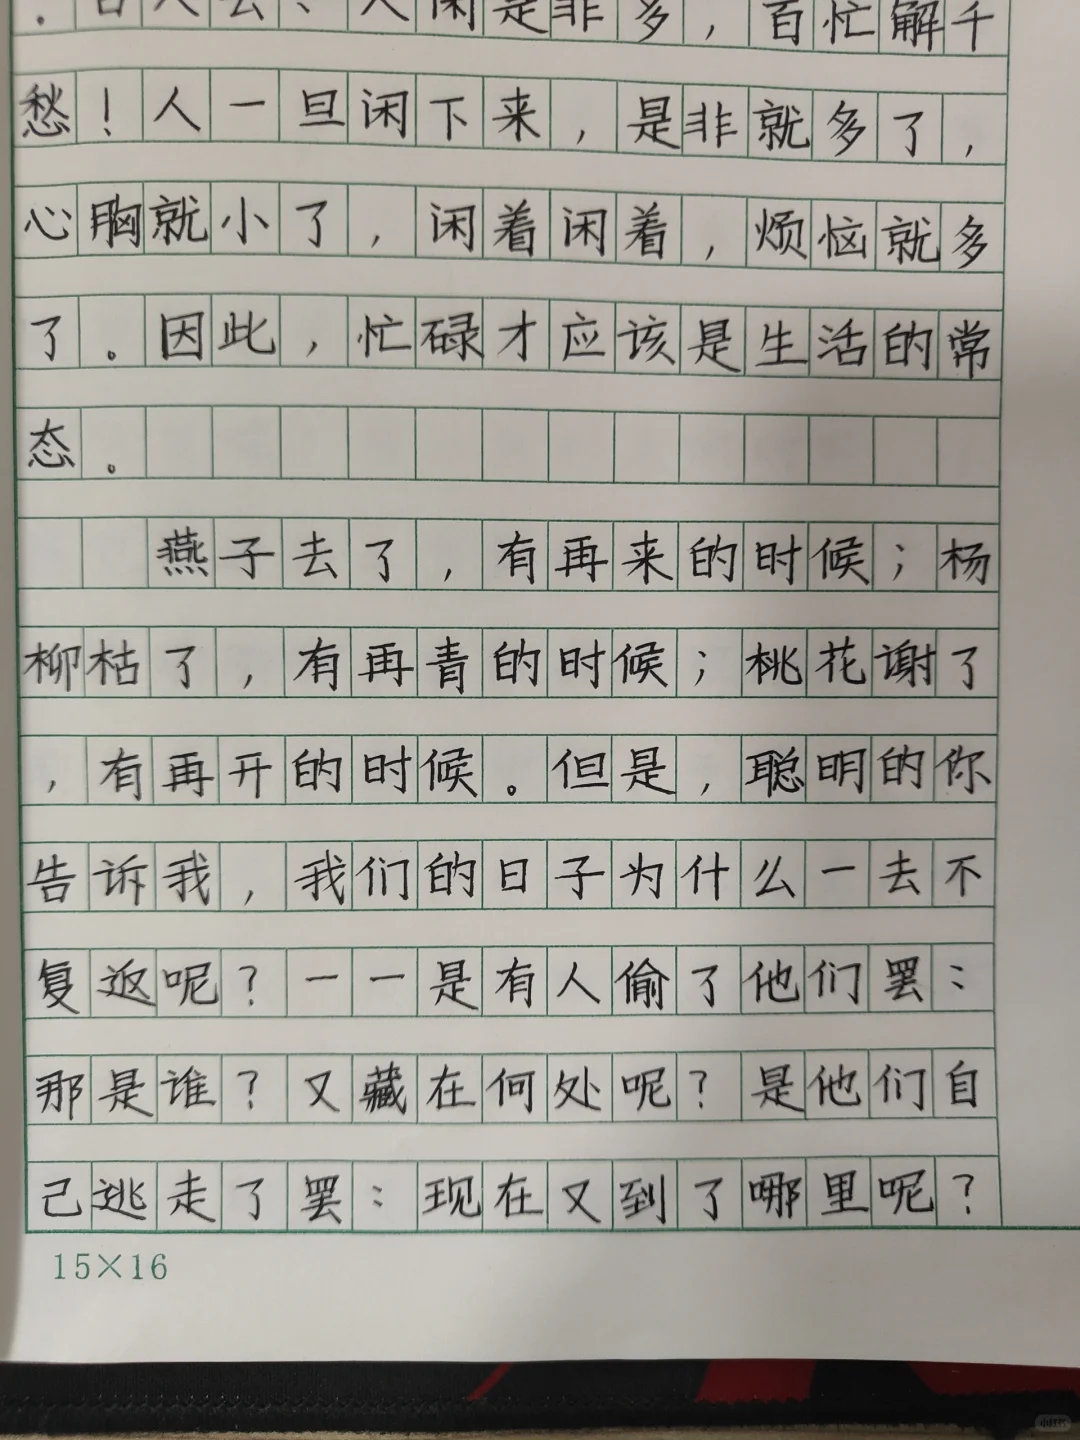 人闲是非多，百忙解千
愁！人一旦闲下来，是非就多了，
心胸就小了，闲着闲着，烦恼就多
了。因此，忙碌才应该是生活的常
态。
燕子去了，有再来的时候；杨
柳枯了，有再青的时候；桃花谢了
，有再开的时候。但是，聪明的你
告诉我，我们的日子为什么一去不
复返呢？一一是有人偷了他们罢：
那是谁？又藏在何处呢？是他们自
己逃走了罢：现在又到了哪里呢？
15×16
小红书